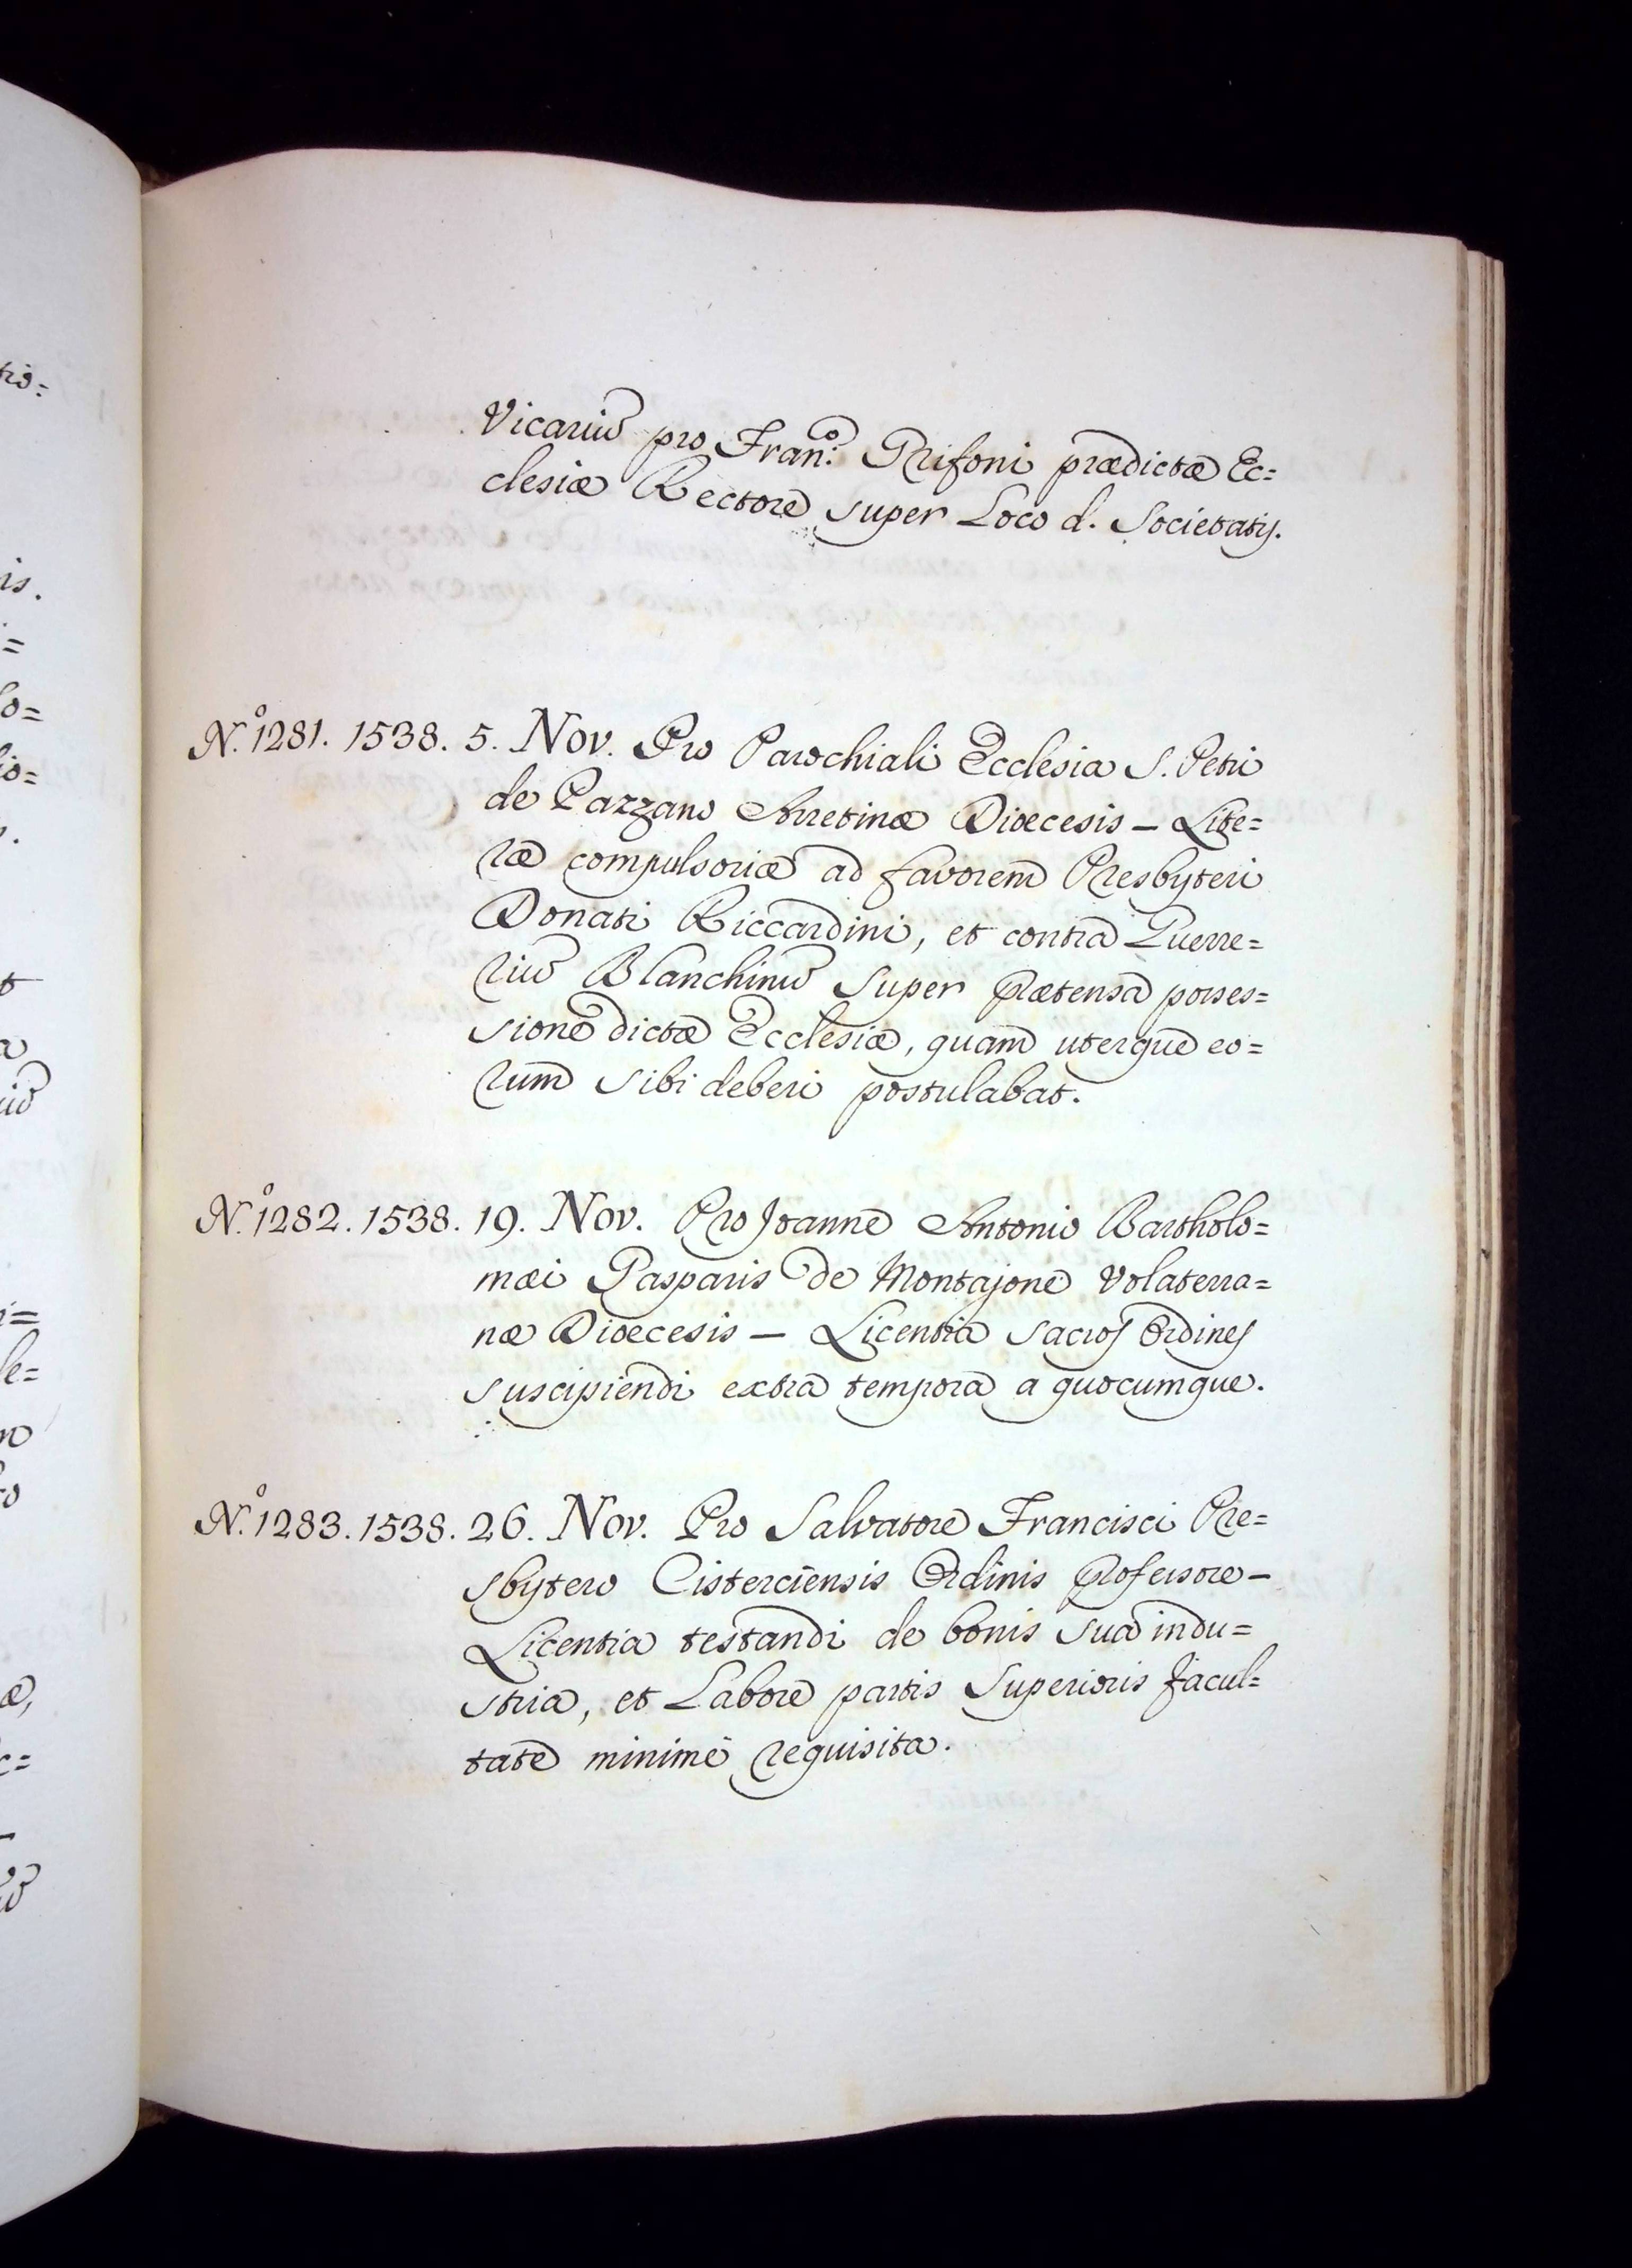 Vicariu pro Fran.º Grifoni prædictæ Ec=
clesiæ Rectore super Loco d. Societatis.
N.º 1281. 1538. 5. Nov. Pro Parochiali Ecclesia S. Petri
de Gazzano Arretinæ Dioecesis – Lite=
ræ compulsoriæ ad favorem Presbyteri
Donati Riccardini, et contra Guerre=
riu Blanchinu super prætensa posses=
sione dictæ Ecclesiæ, quam uterque eo=
rum sibi deberi postulabat.
N.º 1282. 1538. 19. Nov. Pro Joanne Antonio Bartholo=
mæi Gasparis de Montajone Volaterra=
næ Dioecesis – Licentia sacros Ordines
suscipiendi extra tempora a quocumque.
N.º 1283. 1538. 26. Nov. Pro Salvatore Francisci Pre=
sbytero Cisterciensis Ordinis Professore –
Licentia testandi de bonis sua indu=
stria, et Labore partis Superioris facul=
tate minimè requisita.